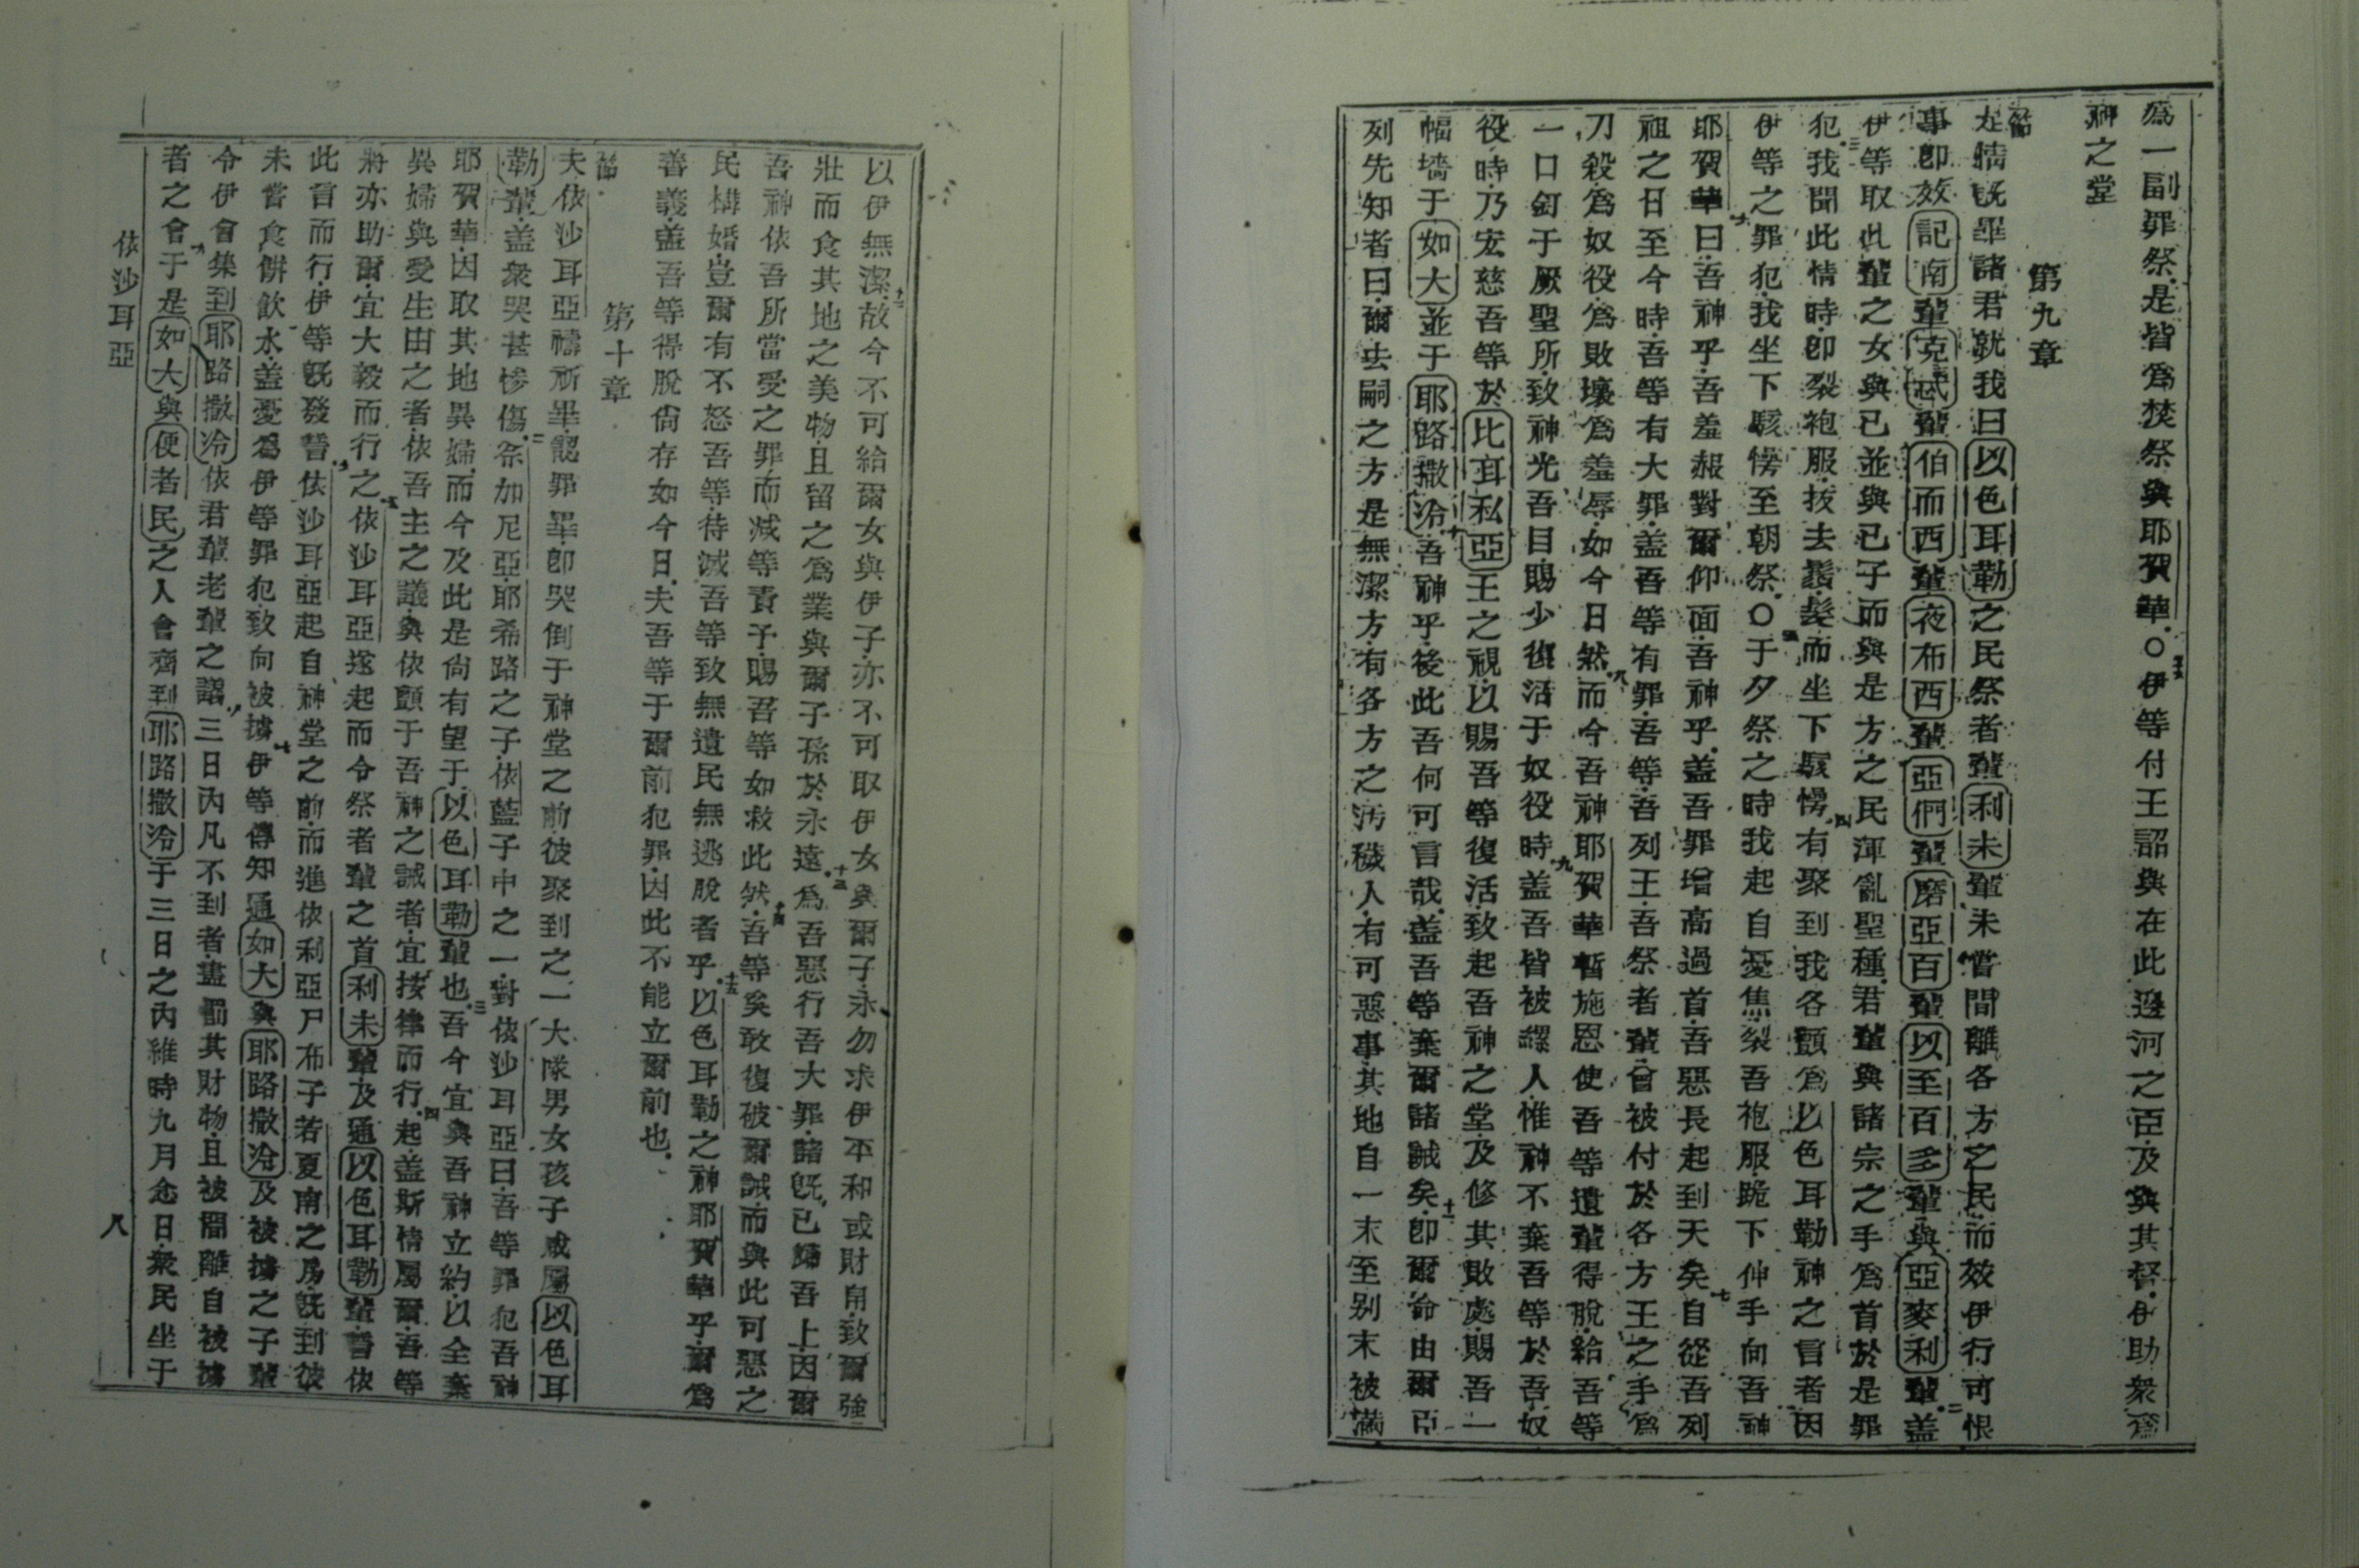 為一副罪祭是皆為焚祭與耶賀華○伊等付王詔與在此邊河之臣及與其督伊助衆為
神之堂
第九章
左情旣畢諸君就我曰以色耳勒之民祭者輩利未輩未嘗間離各方之民而效伊行可恨
事卽效記南輩克忒輩伯而西輩夜布西輩亞們輩磨亞百輩以至百多輩與亞麥利輩蓋
伊等取此輩之女與已並與已子而與是方之民渾亂聖種君輩與諸宗之手為首於是罪
犯我聞此情時卽裂袍服抜去鬚髮而坐下駭愕有聚到我各顫為以色耳勒神之言者因
伊等之罪犯我坐下駭愕至朝祭○于夕祭之時我起自憂焦裂吾袍服跪下伸手向吾神
耶賀華曰吾神乎吾羞赧對爾仰面吾神乎蓋吾罪增高過首吾惡長起到天矣自從吾列
祖之日至今時吾等有大罪蓋吾等有罪吾等吾列王吾祭者輩曾被付於各方王之手為
刀殺為奴役為敗壞為羞辱如今日然而今吾神耶賀華暫施恩使吾等遺輩得脫給吾等
一口釘于厥聖所致神光吾目賜少復活于奴役時蓋吾皆被縲人惟神不棄吾等於吾奴
役時乃宏慈吾等於比耳私亞王之視以賜吾等復活致起吾神之堂及修其敗處賜吾一
幅墻于如大並于耶路撒冷吾神乎後此吾何可言哉蓋吾等棄爾諸誡矣卽爾命由爾臣
列先知者曰爾去嗣之方是無潔方有各方之汚穢人有可惡事其地自一末至别末被滿
以伊無潔故今不可給爾女與伊子亦不可取伊女與爾子永勿求伊平和或財帛致爾強
壯而食其地之美物且留之為業與爾子孫於永遠為吾惡行吾大罪諸旣已歸吾上因爾
吾神依吾所當受之罪而减等責予賜吾等如救此然吾等奚敢復破爾誡而與此可惡之
民構婚豈爾有不怒吾等待滅吾等致無遺民無逃脫者乎以色耳勒之神耶賀華乎爾為
善義蓋吾等得脫尙存如今日夫吾等于爾前犯罪因此不能立爾前也
第十章
夫依沙耳亞禱祈畢認罪畢卽哭倒于神堂之前彼聚到之一大隊男女孩子咸屬以色耳
勒輩蓋衆哭甚慘傷祭加尼亞耶希路之子依藍子中之一對依沙耳亞曰吾等罪犯吾神
耶賀華因取其地異婦而今及此是尙有望于以色耳勒輩也吾今宜與吾神立約以全棄
異婦與受生由之者依吾主之議與依顫于吾神之誡者宜按律而行起蓋斯情屬爾吾等
將亦助爾宜大毅而行之依沙耳亞遂起而令祭者輩之首利未輩及通以色耳勒輩誓依
此言而行伊等旣發誓依沙耳亞起自神堂之前而進依利亞尸布子若夏南之房旣到彼
未嘗食餅飮水蓋憂為伊等罪犯致向被擄伊等傳知通如大與耶路撒冷及被擄之子輩
令伊會集到耶路撒冷依君輩老輩之謀三日內凡不到者盡罰其財物且被間離自被擄
者之會于是如大與便者民之人會齊到耶路撒冷于三日之內維時九月念日衆民坐于
依沙耳亞
八